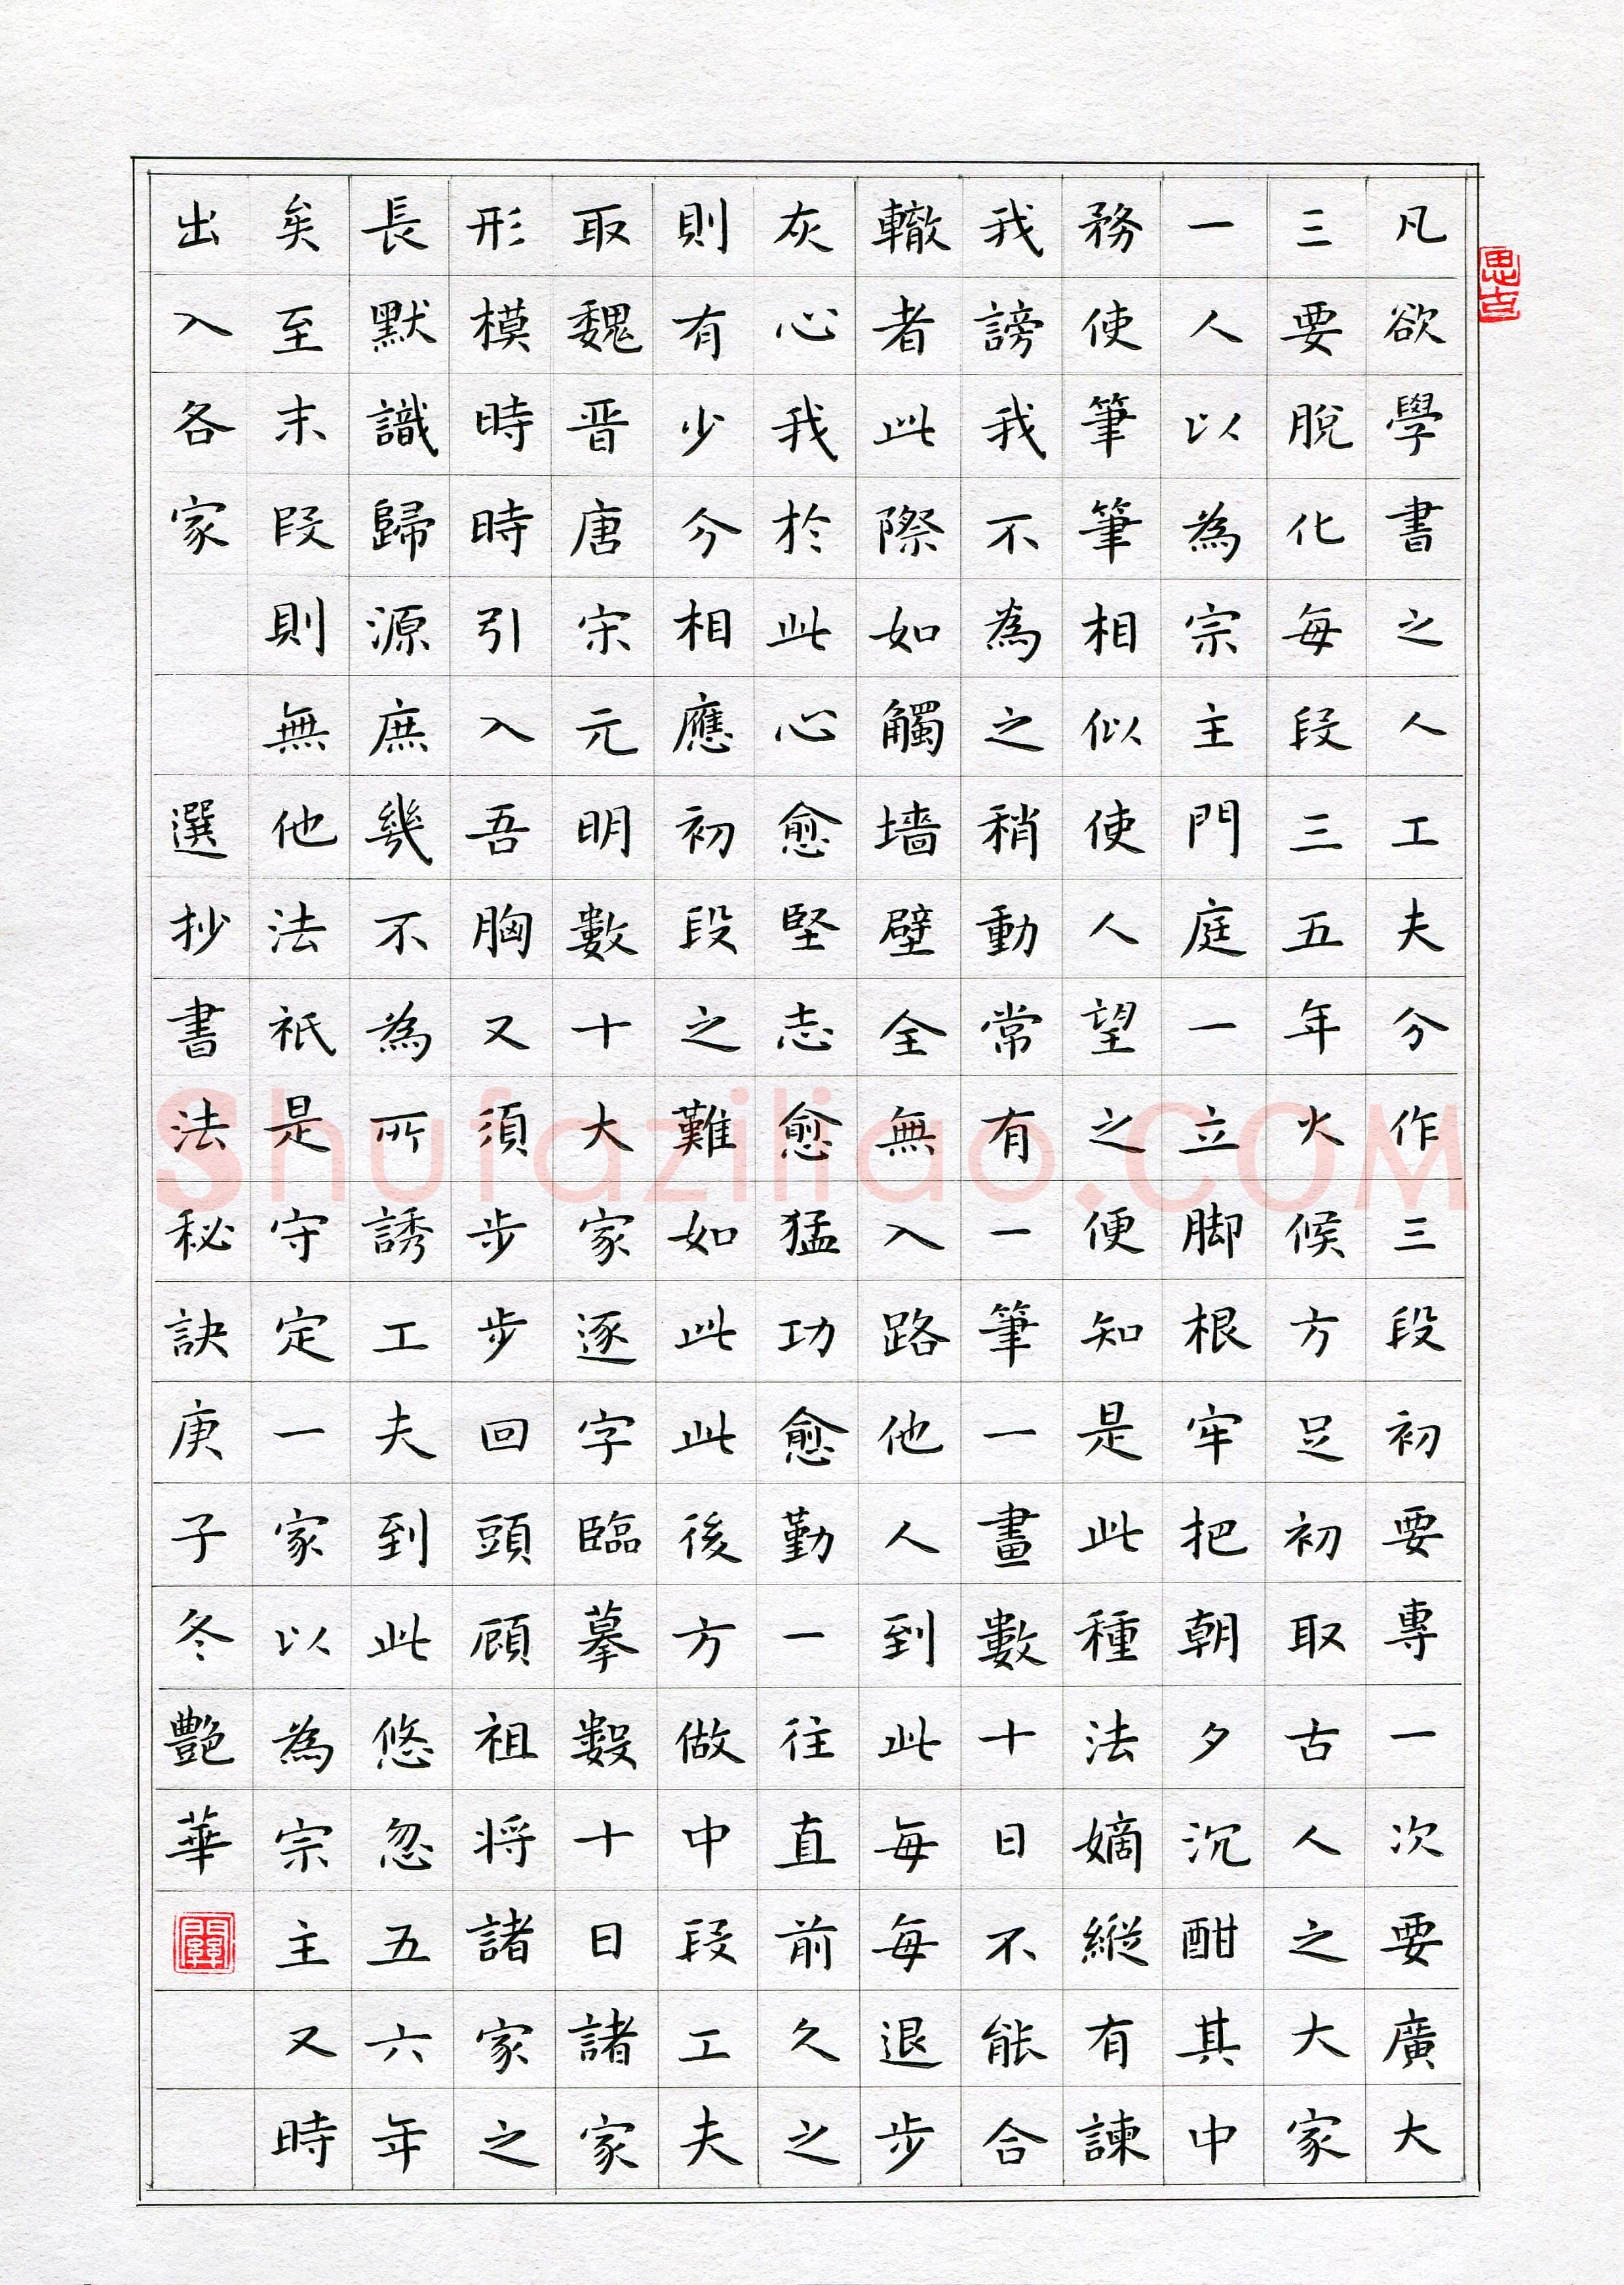 凡欲學書之人工夫分作三段初要專一次要廣大
三要脫化每段三五年火候方足初取古人之大家
一人以為宗主門庭一立脚根牢把朝夕沉酣其中
務使筆筆相似使人望之便知是此種法嫡縱有諫
我謗我不為之稍動常有一筆一畫數十日不能合
轍者此際如觸墻壁全無入路他人到此每每退步
灰心我於此心愈堅志愈猛功愈勤一往直前久之
則有少分相應初段之難如此此後方做中段工夫
取魏晋唐宋元明數十大家逐字臨摹數十日諸家
形模時時引入吾胸又須步步回頭顧祖将諸家之
長默識歸源庶幾不為所誘工夫到此悠忽五六年
矣至末段則無他法祇是守定一家以為宗主又時
出入各家 選抄書法秘訣庚子冬艷華
思古
Shufaziliao.COM